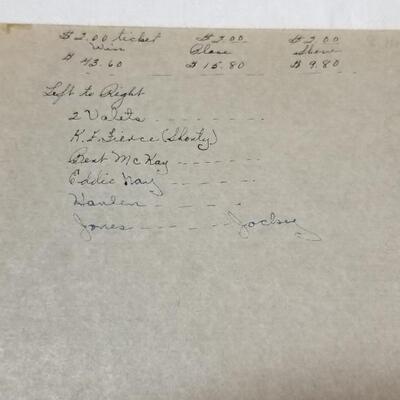 $2.00 ticket $2.00 $2.00
Win Place Show
$43.60 $15.80 $9.80
Left to Right
2 Valets
K. L. Fierce (Shorty)
Bert McKay
Eddie Kay
Hanlen
Jones Jockey